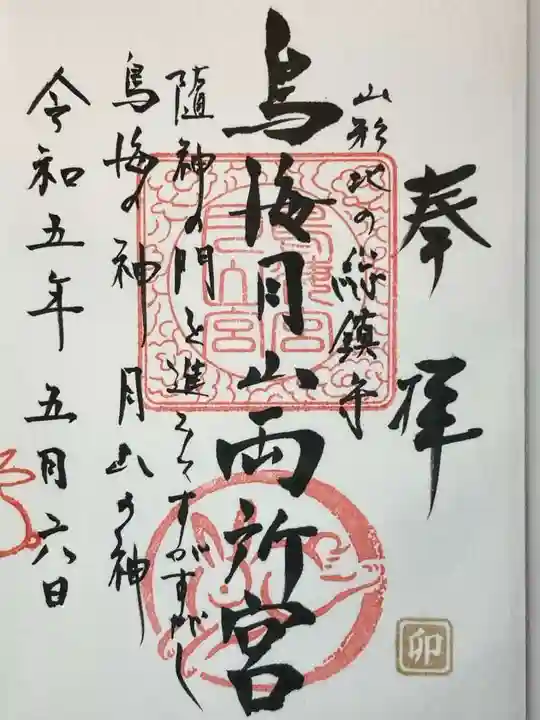 奉拝
山形地の総鎮守
鳥海月山両所宮
随神の門を進みてすがすがし
鳥海の神月山の神
令和五年五月六日
鳥海月山両所宮
卯